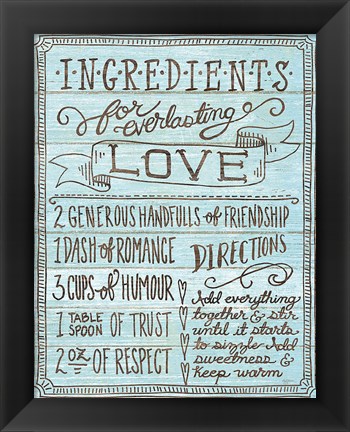 I·N·G·R·E·D·I·E·N·T·S
for everlasting
LOVE
2 GENEROUS HANDFULLS of FRIENDSHIP
1 DASH of ROMANCE
3 CUPS of HUMOUR
1 TABLE SPOON OF TRUST
2 OZ OF RESPECT
DIRECTIONS
Add everything
together & stir
until it starts
to sizzle Add
sweetness &
keep warm